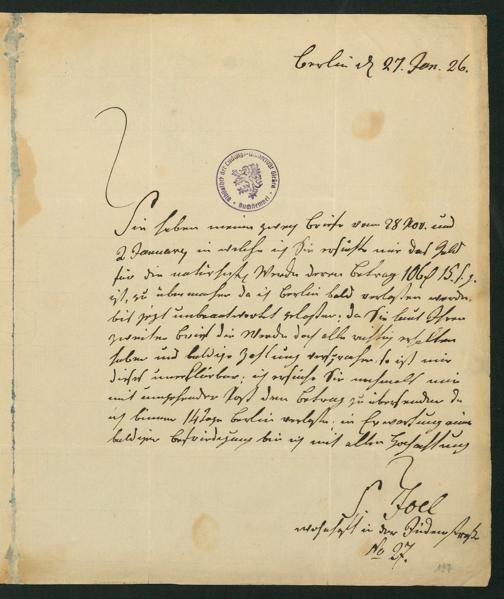 Berlin d 27. Jan. 26.
Bibliothek der Ludwigs-Universität Giessen
Buchstempel
Sie haben meine zwey Briefe vom 28 Nov. und
2 January in welche ich Sie ersuchte mir das Geld
für die Werke deren Betrag 106 15
ist, zu übermachen da ich Berlin bald verlassen werde,
bis jezt unbeantwortet gelassen; da Sie laut Ihren
zweiten Brief die Werke doch alle richtig erhalten
haben und baldige Zahlung versprachen, so ist mir
dieses unerklärbar; ich ersuche Sie mir
mit umgehender Post den Betrag zu übersenden da
ich binnen 14 Tage Berlin verlasse; in Erwartung einer
baldigen Befriedigung bin ich mit aller Hochachtung
S. Joel
wohnhaft in der Jüdenstraße
No 27.